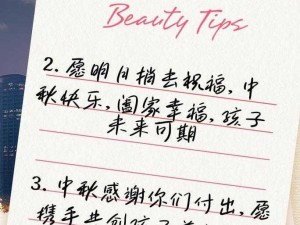 Beauty Tips
2. 愿明月捎去祝福,中
秋快乐,阖家幸福,孩子
未来可期
3. 中秋感谢你们付出,愿